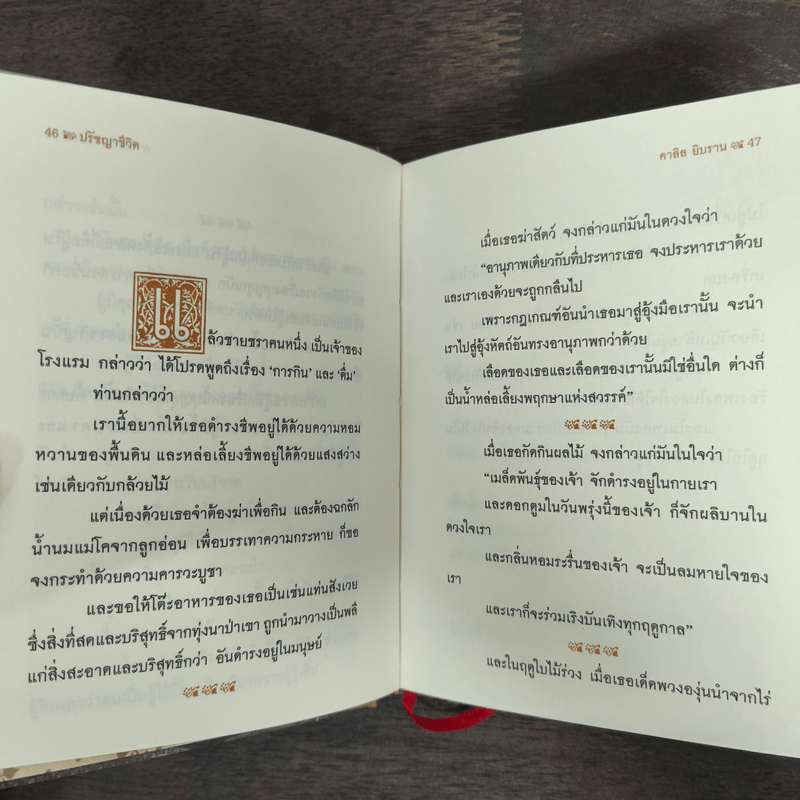 46 ปรัชญาชีวิต
แล้วชายชราคนหนึ่ง เป็นเจ้าของ
โรงแรม กล่าวว่า ได้โปรดพูดถึงเรื่อง ‘การกิน’ และ ‘ดื่ม’
ท่านกล่าวว่า
เรานี้อยากให้เธอดำรงชีพอยู่ได้ด้วยความหอม
หวานของพื้นดิน และหล่อเลี้ยงชีพอยู่ได้ด้วยแสงสว่าง
เช่นเดียวกับกล้วยไม้
แต่เนื่องด้วยเธอจำต้องฆ่าเพื่อกิน และต้องฉกลัก
น้ำนมแม่โคจากลูกอ่อน เพื่อบรรเทาความกระหาย ก็ขอ
จงกระทำด้วยความคารวะบูชา
และขอให้โต๊ะอาหารของเธอเป็นเช่นแท่นสังเวย
ซึ่งสิ่งที่สดและบริสุทธิ์จากทุ่งนาป่าเขา ถูกนำมาวางเป็นพลี
แก่สิ่งสะอาดและบริสุทธิ์กว่า อันดำรงอยู่ในมนุษย์
คาลิล ยิบราน 47
เมื่อเธอฆ่าสัตว์ จงกล่าวแก่มันในดวงใจว่า
“อานุภาพเดียวกับที่ประหารเธอ จงประหารเราด้วย
และเราเองด้วยจะถูกกลืนไป
เพราะกฎเกณฑ์อันนำเธอมาสู่อุ้งมือเรานั้น จะนำ
เราไปสู่อุ้งหัตถ์อันทรงอานุภาพกว่าด้วย
เลือดของเธอและเลือดของเรานั้นมิใช่อื่นใด ต่างก็
เป็นน้ำหล่อเลี้ยงพฤกษาแห่งสวรรค์”
เมื่อเธอกัดกินผลไม้ จงกล่าวแก่มันในใจว่า
“เมล็ดพันธุ์ของเจ้า จักดำรงอยู่ในกายเรา
และดอกตูมในวันพรุ่งนี้ของเจ้า ก็จักผลิบานใน
ดวงใจเรา
และกลิ่นหอมระรื่นของเจ้า จะเป็นลมหายใจของ
เรา
และเราก็จะร่วมเริงบันเทิงทุกฤดูกาล”
และในฤดูใบไม้ร่วง เมื่อเธอเด็ดพวงองุ่นนำจากไร่